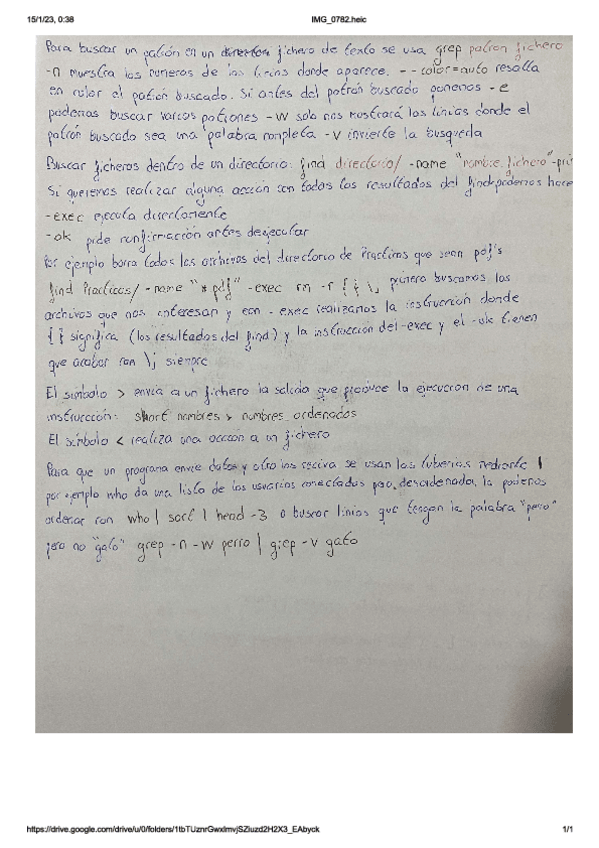 15/1/23, 0:38 IMG_0782.heic
Para buscar un patrón en un fichero de texto se usa grep patron fichero
-n muestra los numeros de las linias donde aparece. --color=auto resalta
en color el patrón buscado. Si antes del patrón buscado ponemos -e
podemos buscar varios patrones -w solo nos mostrará las linias donde el
patrón buscado sea una palabra completa -v invierte la busqueda
Buscar ficheros dentro de un directorio: find directorio/ -name "nombre fichero" -pri
Si queremos realizar alguna acción con todos los resultados del find podemos hacer
-exec ejecuta directamente
-ok pide confirmación antes de ejecutar
Por ejemplo borra todos los archivos del directorio de Practicas que sean pdf's
find Practicas/ -name "*pdf" -exec rm -r {} \; primero buscamos los
archivos que nos interesan y con -exec realizamos la instrucción donde
{} significa (los resultados del find) y la instrucción del -exec y el -ok tienen
que acabar con \; siempre
El simbolo > envia a un fichero la salida que produce la ejecución de una
instrucción: short nombres > nombres ordenados
El símbolo < realiza una acción a un fichero
Para que un programa envie datos y otro los reciva se usan las tuberias mediante |
por ejemplo who da una lista de los usuarios conectados pero desordenada, la podemos
ordenar con who | sort | head -3 o buscar linias que tengan la palabra "perro"
pero no "gato" grep -n -w perro | grep -v gato
https://drive.google.com/drive/u/0/folders/1tbTUznrGwxlmvjSZiuzd2H2X3_EAbyck 1/1